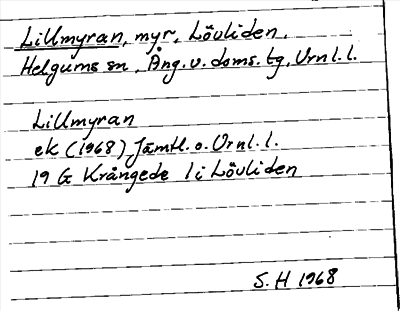 Lillmyran, myr, Lövliden.
Helgums sn, Ång. v. doms. tg, Vrnl. l.
Lillmyran
ek (1968) Jämtl. o. Vrnl. l.
19 G Krångede 1 i Lövliden
S. H 1968